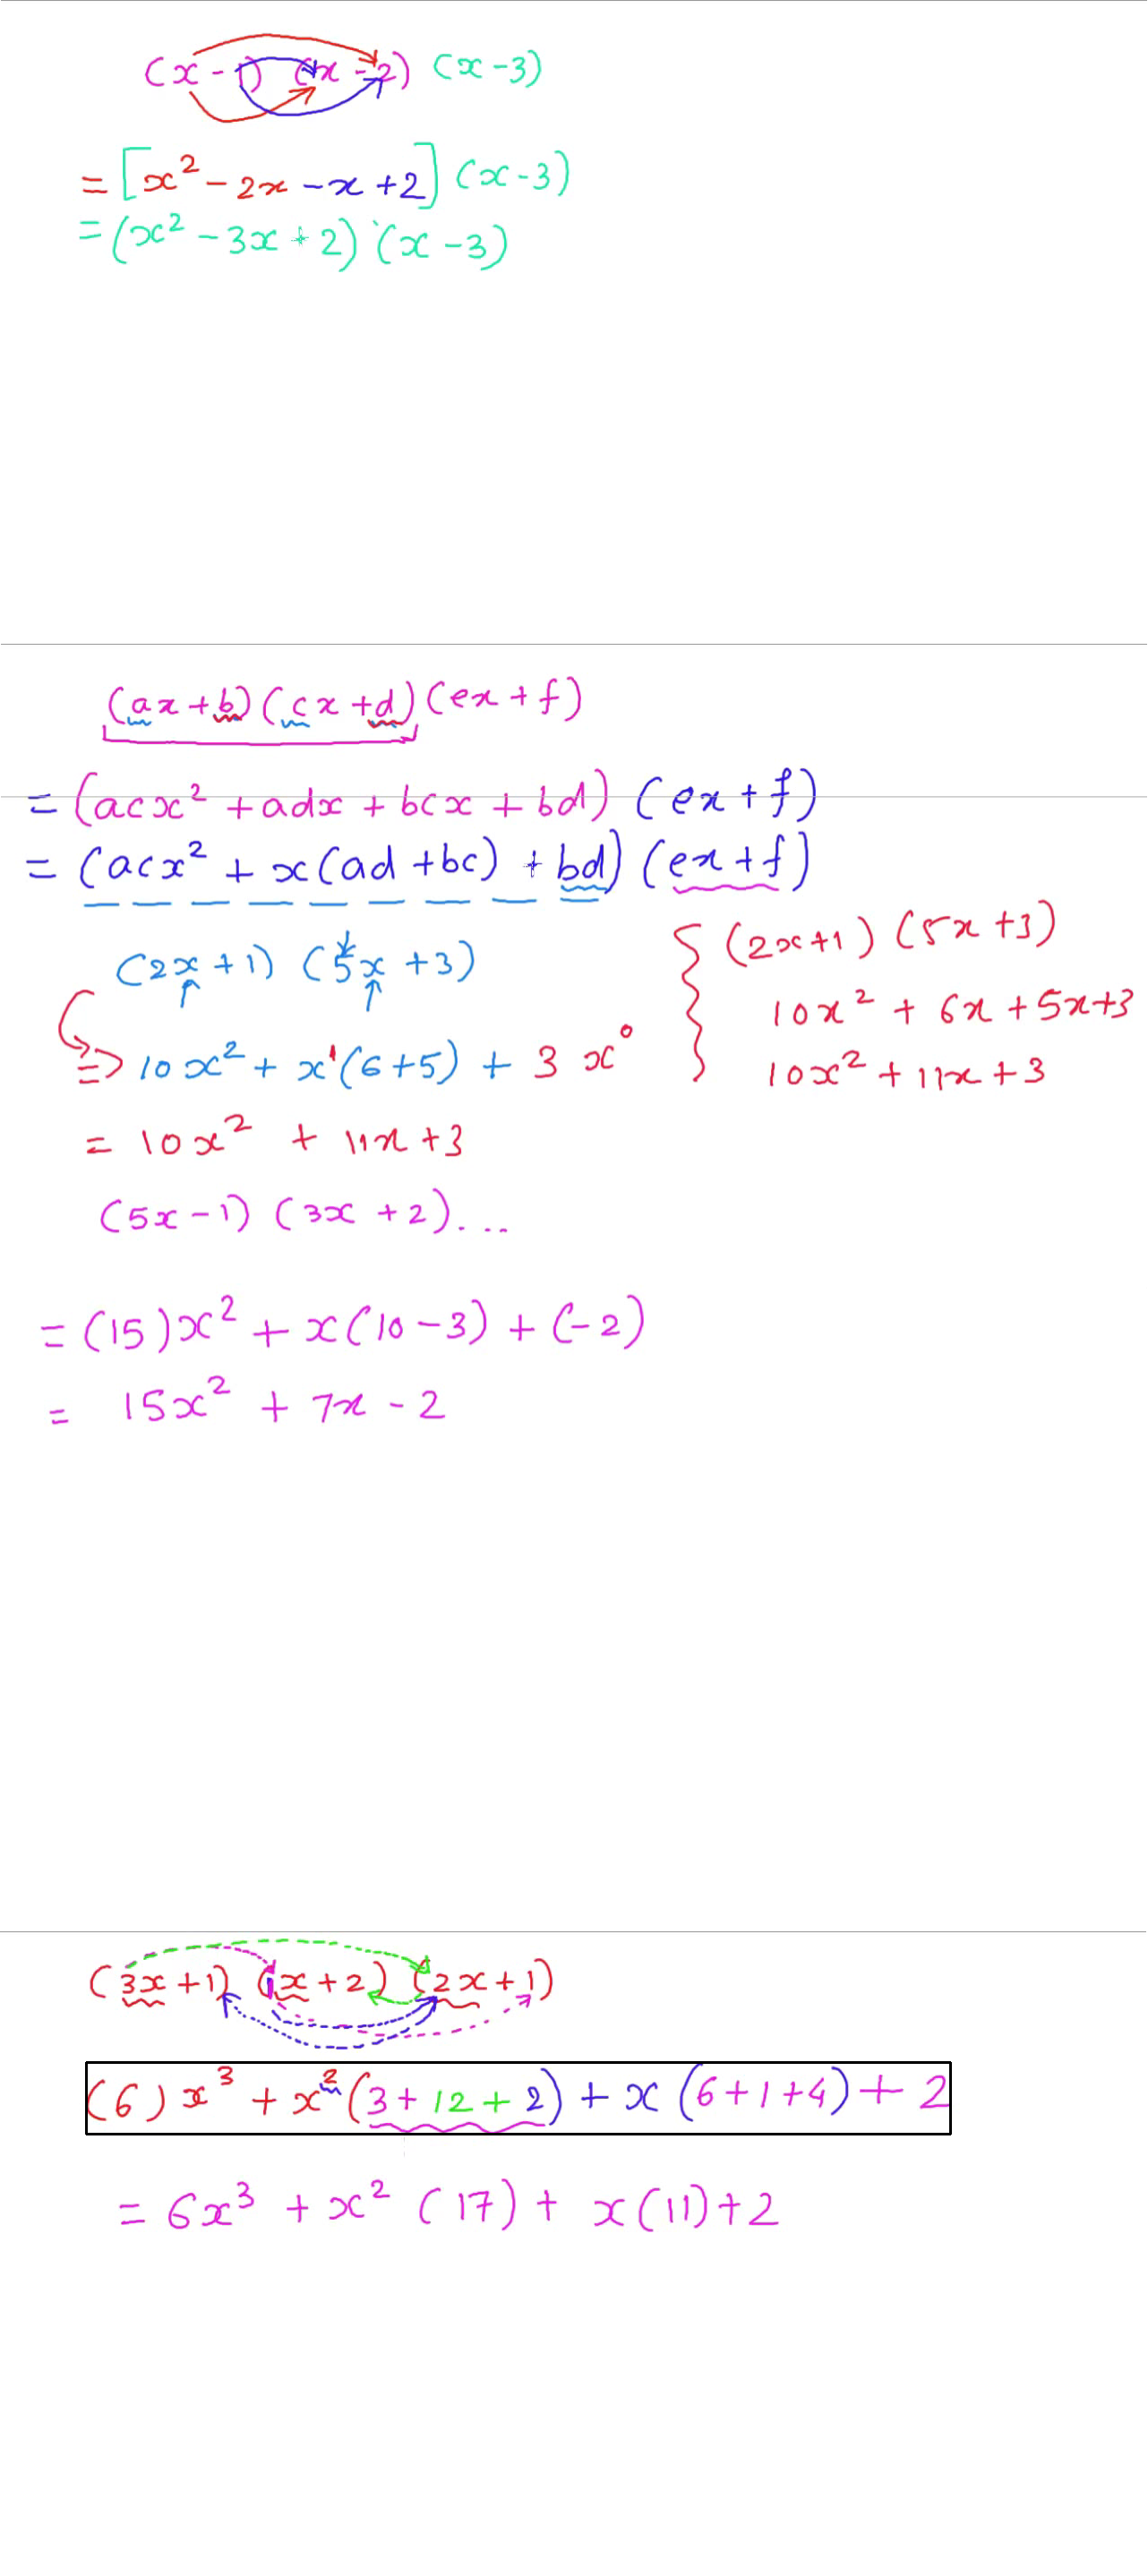 (x - 1) (x - 2) (x - 3)
= [x² - 2x - x + 2] (x - 3)
= (x² - 3x + 2) (x - 3)
(ax + b) (cx + d) (ex + f)
= (acx² + adx + bcx + bd) (ex + f)
= (acx² + x(ad + bc) + bd) (ex + f)
(2x + 1) (5x + 3)
⇒ 10x² + x¹(6 + 5) + 3x⁰
= 10x² + 11x + 3
(2x + 1) (5x + 3)
10x² + 6x + 5x + 3
10x² + 11x + 3
(5x - 1) (3x + 2)...
= (15)x² + x(10 - 3) + (-2)
= 15x² + 7x - 2
(3x + 1) (1x + 2) (2x + 1)
(6)x³ + x²(3 + 12 + 2) + x(6 + 1 + 4) + 2
= 6x³ + x²(17) + x(11) + 2